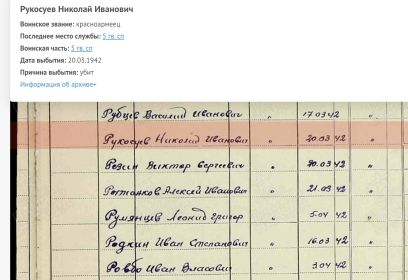 Рукосуев Николай Иванович
Воинское звание: красноармеец
Последнее место службы: 5 гв. сп
Воинская часть: 5 гв. сп
Дата выбытия: 20.03.1942
Причина выбытия: убит
Информация об архиве+
Рубцов Василий Иванович " 17.03.42 "
Рукосуев Николай Иванович " 20.03.42 "
Резин Виктор Сергеевич " 20.03.42 "
Алексей Иванович " 21.03.42 "
Румянцев Леонид Григор " 5.04.42 "
Родкин Иван Степанович " 16.03.42 "
Иван Власович " 3.04.42 "